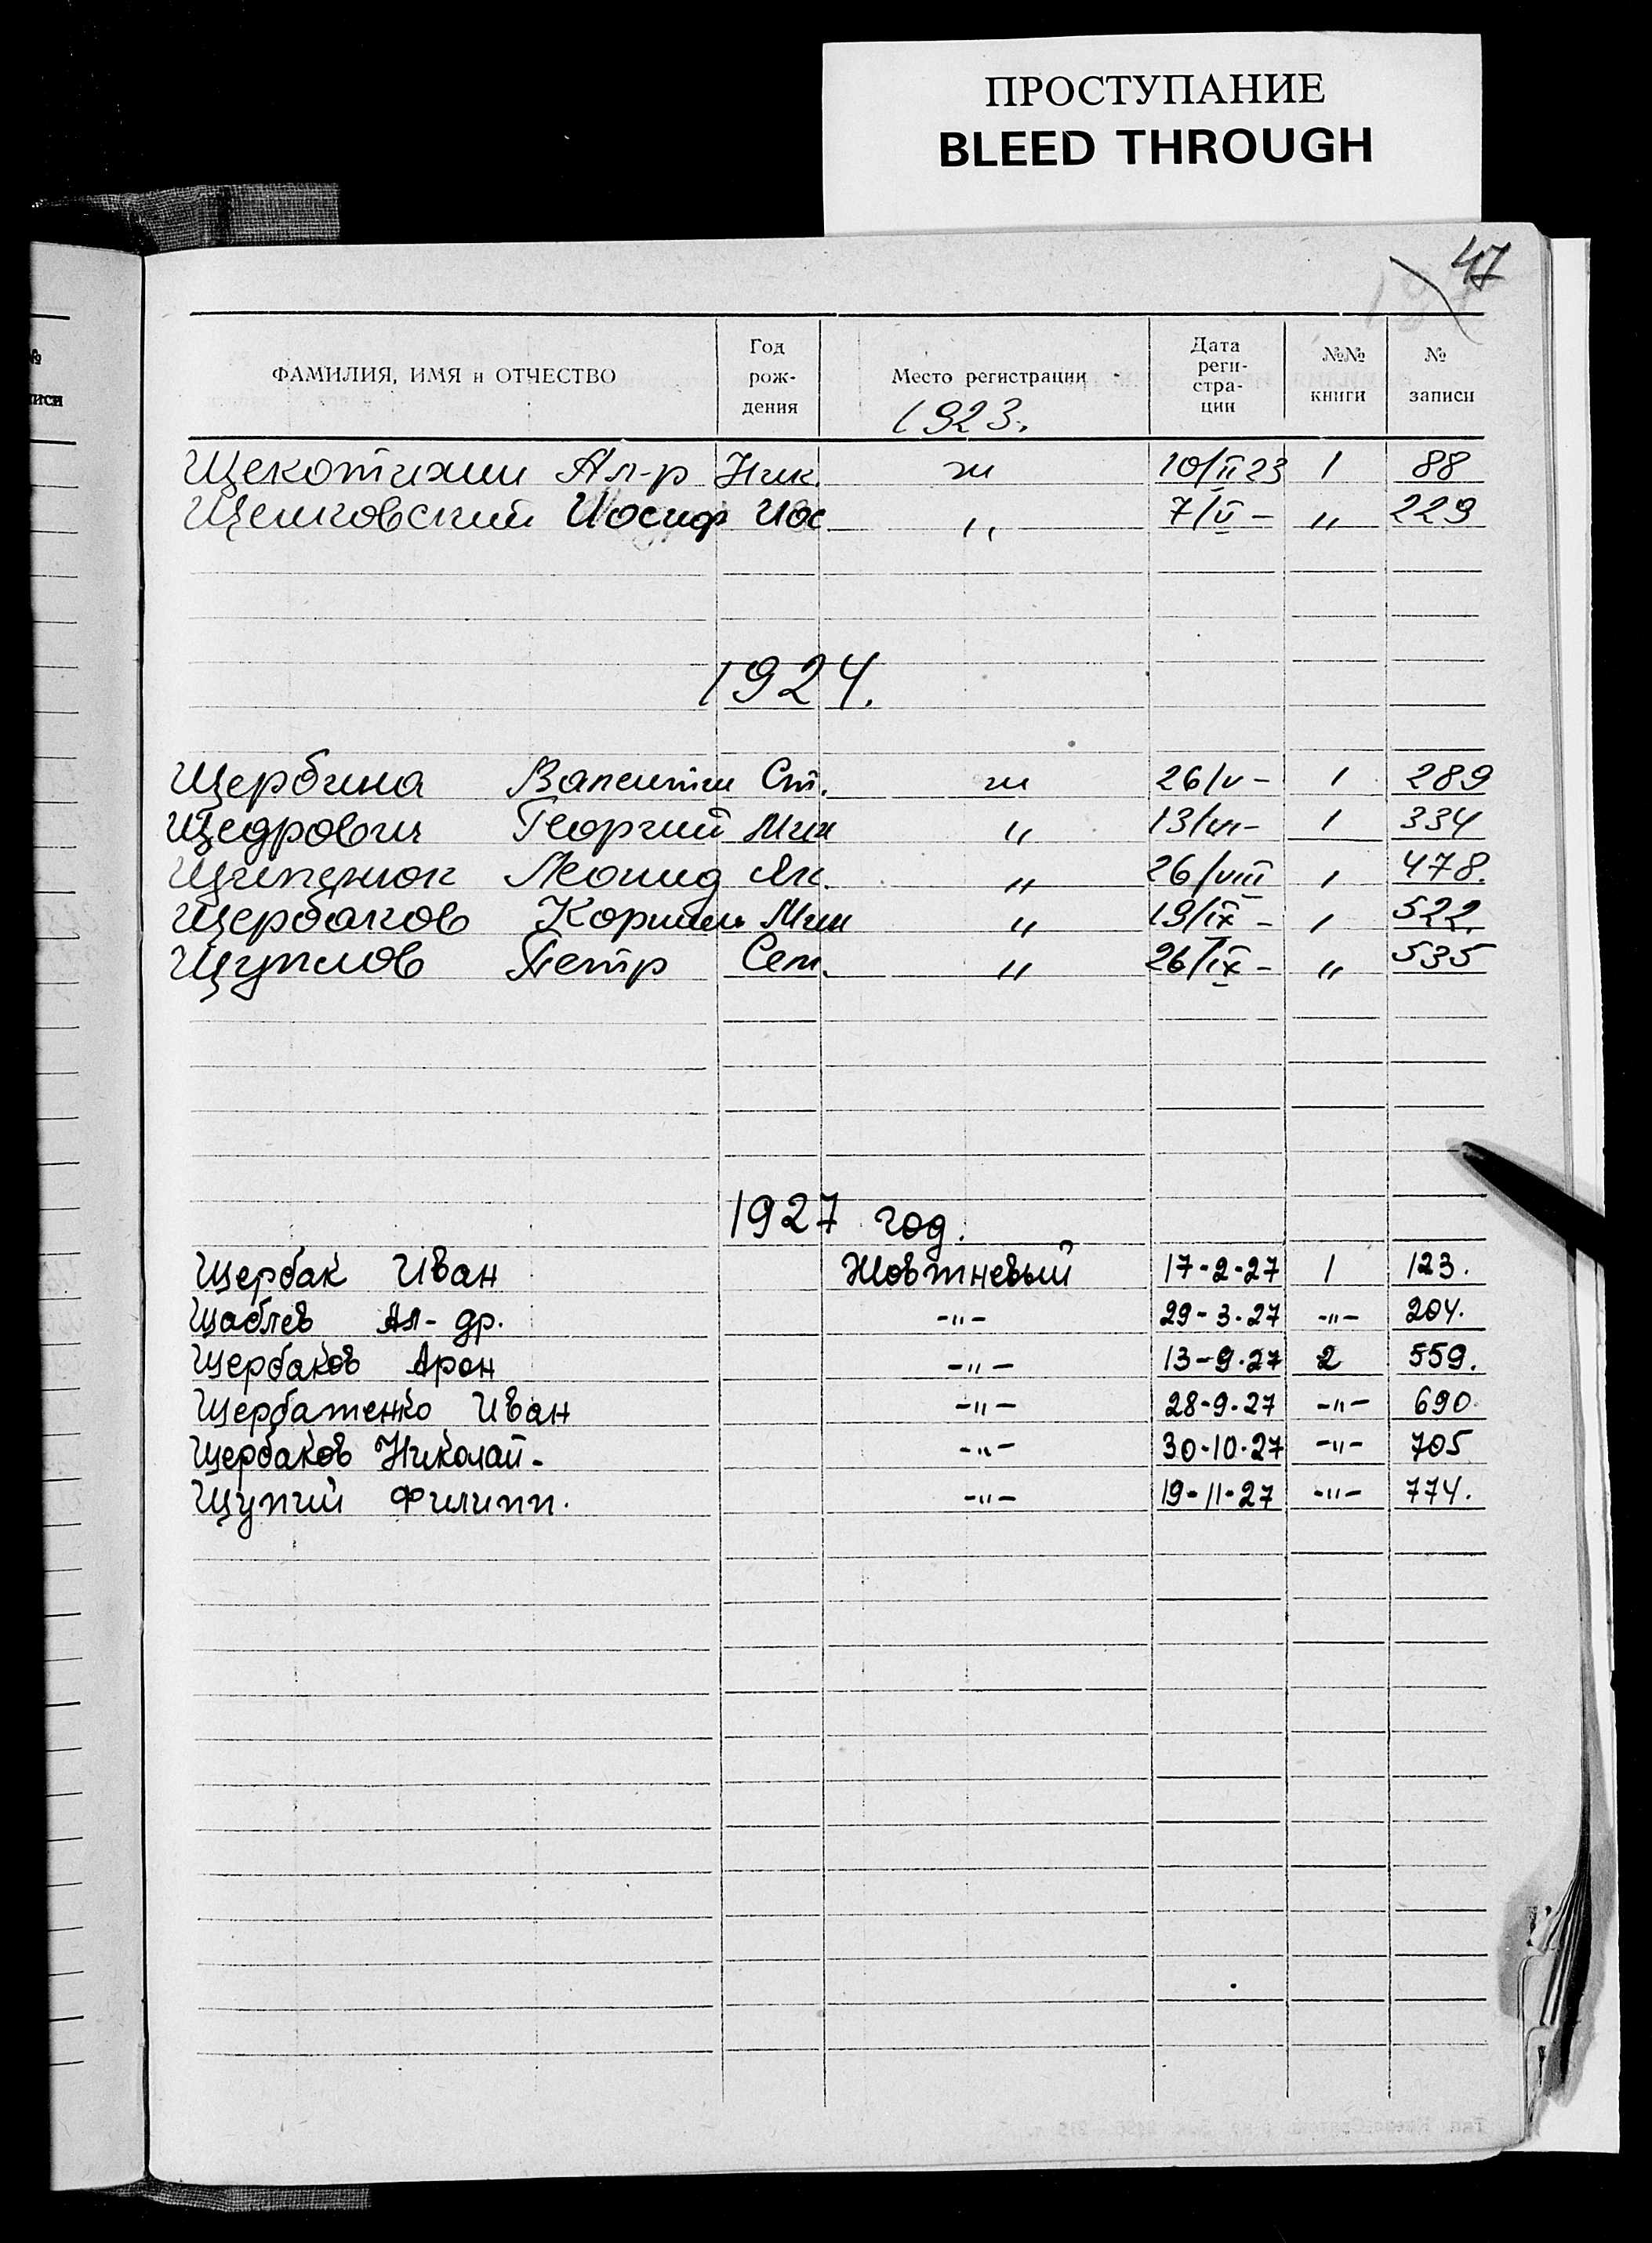 ПРОСТУПАНИЕ
BLEED THROUGH
47
ФАМИЛИЯ, ИМЯ и ОТЧЕСТВО Год рождения Место регистрации Дата реги-стра-ции №№ книги № записи
1923.
Щекотихин Ал-р Ник. ж 10/II 23 1 88
Иосиф Иос " 7/V - " 229
1924.
Щербина Валентин Ст. ж 26/V - 1 289
Щедрович Георгий Мих " 13/VI - 1 334
Леонид Як. " 26/VIII 1 478.
Щербаков Корнил Мих " 19/IX - 1 522.
Щуплов Петр Сем. " 26/IX - " 535
1927 год.
Щербак Иван Жовтневый 17-2-27 1 123.
Щаблев Ал-др. -"- 29-3.27 -"- 204.
Щербаков Арон -"- 13-9.27 2 559.
Щербатенко Иван -"- 28-9.27 -"- 690.
Щербаков Николай- -"- 30-10.27 -"- 705
Щупий Филипп. -"- 19-11-27 -"- 774.